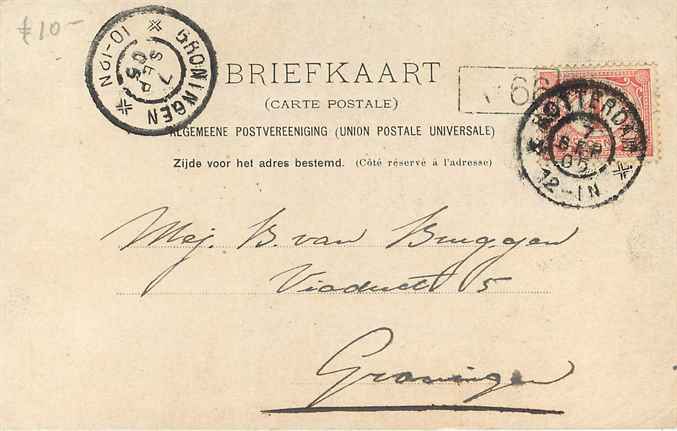 £ 10-
GRONINGEN
7 SEP 05
10-12N
BRIEFKAART
(CARTE POSTALE)
66
ALGEMEENE POSTVEREENIGING (UNION POSTALE UNIVERSALE)
Zijde voor het adres bestemd. (Côté réservé à l'adresse)
ROTTERDAM
7 SEP 05
12-1N
Mej. B. van Bruggen
Viaduct 5
Groningen